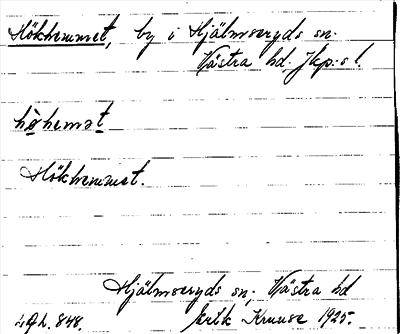 Hökhemmet, by i Hjälmseryds sn.
Västra hd. Jkp:s l.
hö̀hemət
Hökhemmet.
Hjälmseryds sn, Västra hd
Erik Kruuse 1925.